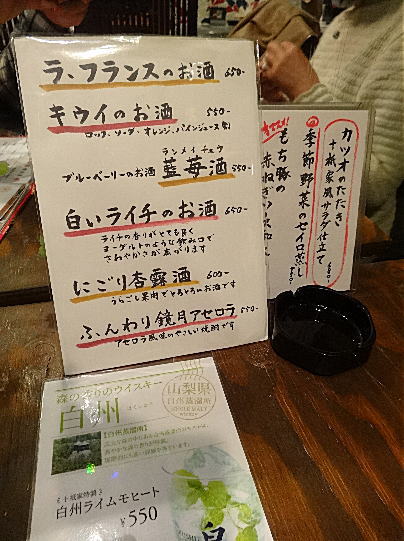 ラ・フランスのお酒 650-
キウイのお酒 550-
ロック、ソーダ、オレンジ、パインジュース割
ランメイチュウ
ブルーベリーのお酒 藍苺酒 550-
白いライチのお酒 650-
ライチの香りがとても良く
ヨーグルトのような飲み口で
さわやかさが広がります
にごり杏露酒 600-
うらごし果肉でとろとろのお酒です
ふんわり鏡月アセロラ 550-
アセロラ風味のやさしい焼酎です
カツオのたたき
十城家風サラダ仕立て
680
季節野菜のセイロ蒸し
もち豚の
森の香りのウイスキー
白州
はくしゅう
山梨県
白州蒸溜所
SINGLE MALT
WHISKY
【白州蒸溜所】
十城家特製
白州ライムモヒート
¥550
白